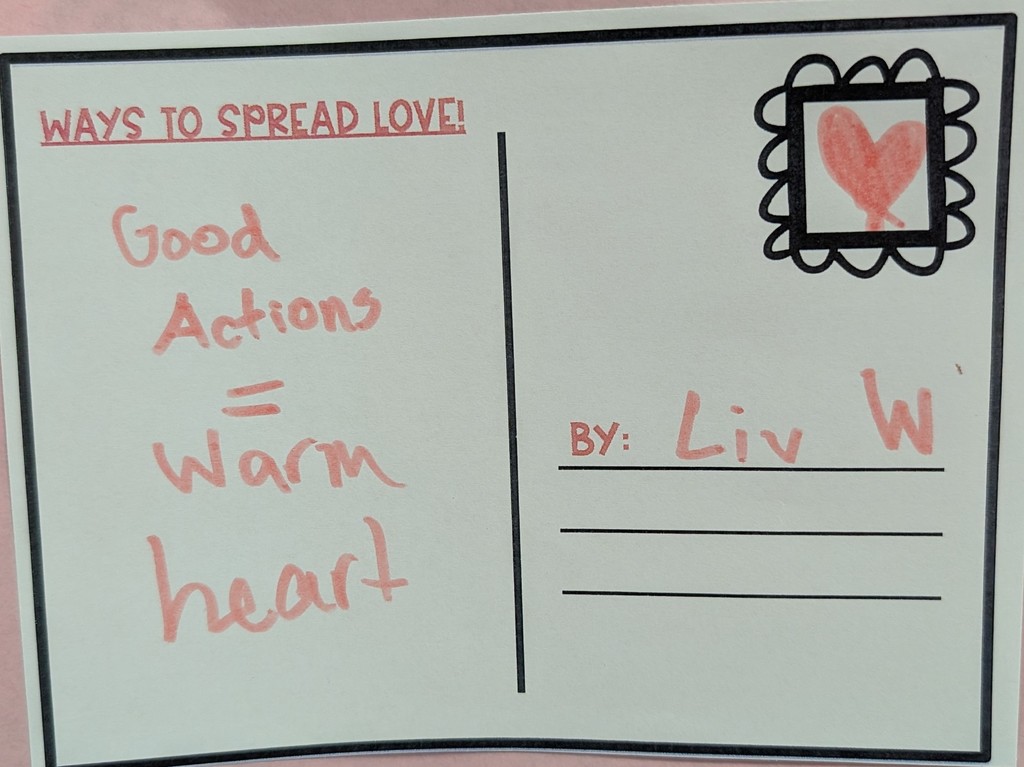 WAYS TO SPREAD LOVE!
Good
Actions
=
Warm
heart
BY: Liv W